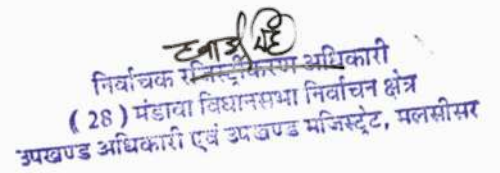 निर्वाचक रजिस्ट्रीकरण अधिकारी
( 28 ) मंडावा विधानसभा निर्वाचन क्षेत्र
उपखण्ड अधिकारी एवं उपखण्ड मजिस्ट्रेट, मलसीसर